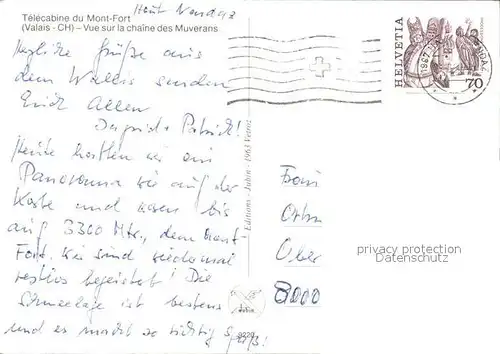 Haute Nendaz
Télécabine du Mont-Fort
(Valais - CH) – Vue sur la chaîne des Muverans
Herzliche Grüße aus
dem Wallis senden
Euch Allen
Ingrid + Patrick!
Heute hatten wir ein
Panorama wie auf der
Karte und waren bis
auf 3300 Mtr., dem Mont-
Fort. Wir sind wiedermal
restlos begeistert! Die
Schneelage ist bestens
und es macht so richtig Spaß!
Editions Jubin - 1963 Vetroz
HELVETIA
70
Frau
Ober
8000
privacy protection
Datenschutz
9229